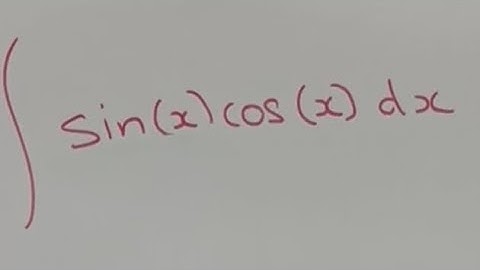 ∫ sin(x) cos(x) dx